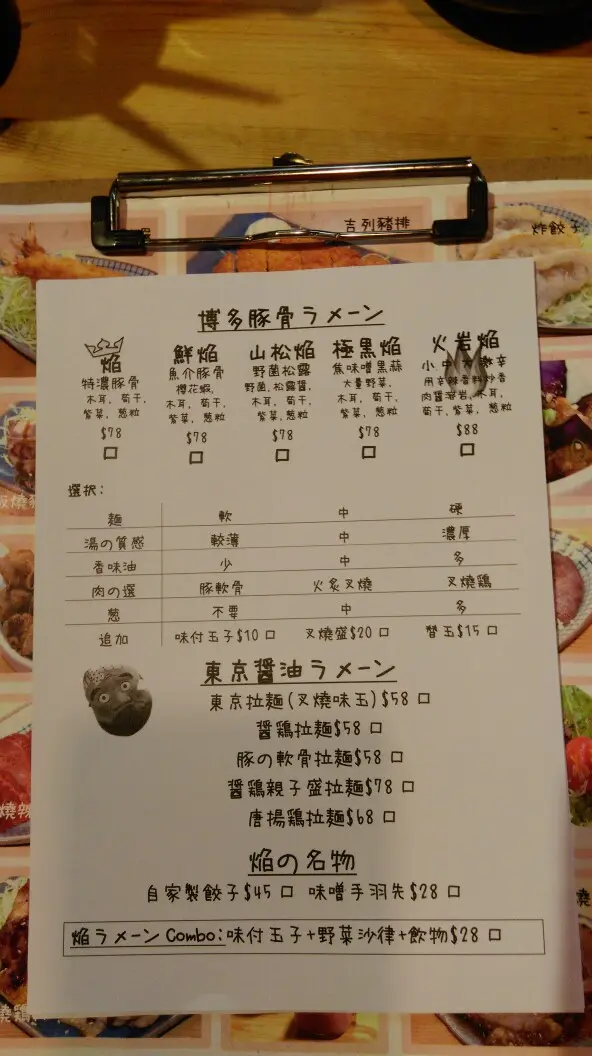 吉列豬排
炸餃子
博多豚骨ラーメン
焔
特濃豚骨
木耳, 荀干,
紫菜, 葱粒
$78 □
鮮焔
魚介豚骨
櫻花蝦,
木耳, 荀干,
紫菜, 葱粒
$78 □
山松焔
野菌松露
野菌, 松露醬,
木耳, 荀干,
紫菜, 葱粒
$78 □
極黒焔
焦味噌黒蒜
大量野菜,
木耳, 荀干,
紫菜, 葱粒
$78 □
火岩焔
小 中 大 激辛
用辛辣香料炒香
肉醬溶岩, 木耳,
荀干, 紫菜, 葱粒
$88 □
選択:
麵 軟 中 硬
湯の質感 較薄 中 濃厚
香味油 少 中 多
肉の選 豚軟骨 火炙叉燒 叉燒鶏
葱 不要 中 多
追加 味付玉子$10 □ 叉燒盛$20 □ 替玉$15 □
東京醤油ラーメン
東京拉麵(叉燒味玉)$58 □
醤鶏拉麵$58 □
豚の軟骨拉麵$58 □
醤鶏親子盛拉麵$78 □
唐揚鶏拉麵$68 □
焔の名物
自家製餃子$45 □ 味噌手羽先$28 □
焔ラーメン Combo:味付玉子+野菜沙律+飲物$28 □